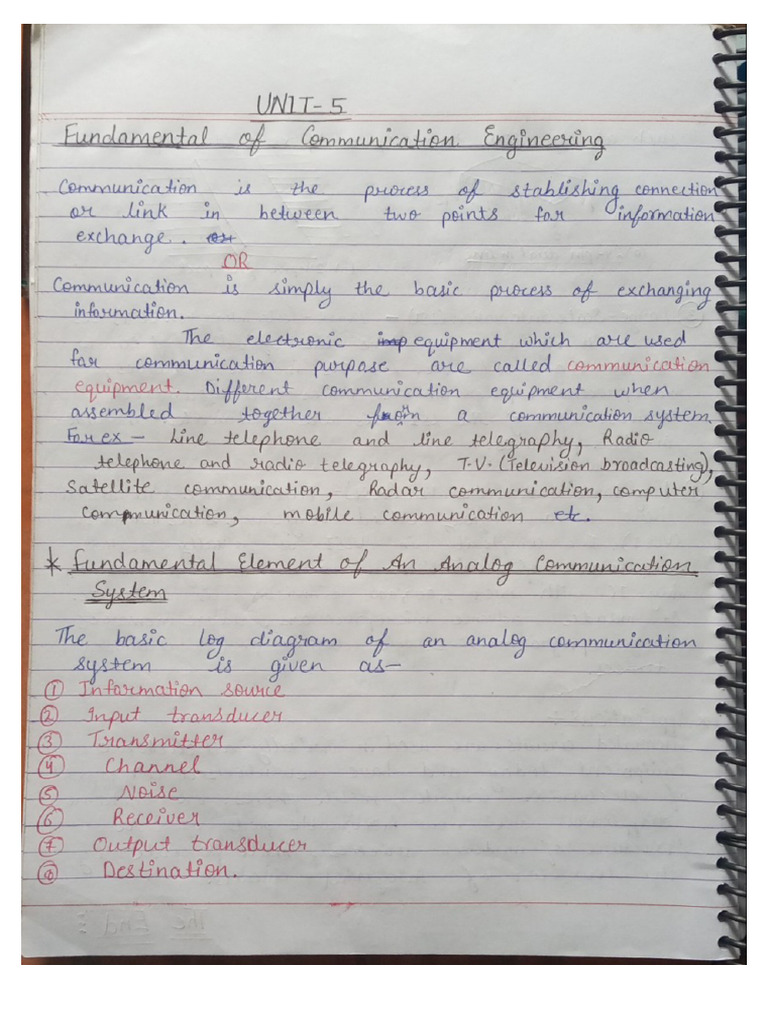 UNIT-5
Fundamental of Communication Engineering
Communication is the process of stablishing connection
or link in between two points for information
exchange.
OR
Communication is simply the basic process of exchanging
information.
The electronic equipment which are used
for communication purpose are called communication
equipment. Different communication equipment when
assembled together form a communication system.
For ex - Line telephone and line telegraphy, Radio
telephone and radio telegraphy, T.V. (Television broadcasting),
Satellite communication, Radar communication, computer
communication, mobile communication etc.
* Fundamental Element of An Analog Communication
System
The basic log diagram of an analog communication
system is given as-
① Information source
② Input transducer
③ Transmitter
④ Channel
⑤ Noise
⑥ Receiver
⑦ Output transducer
⑧ Destination.